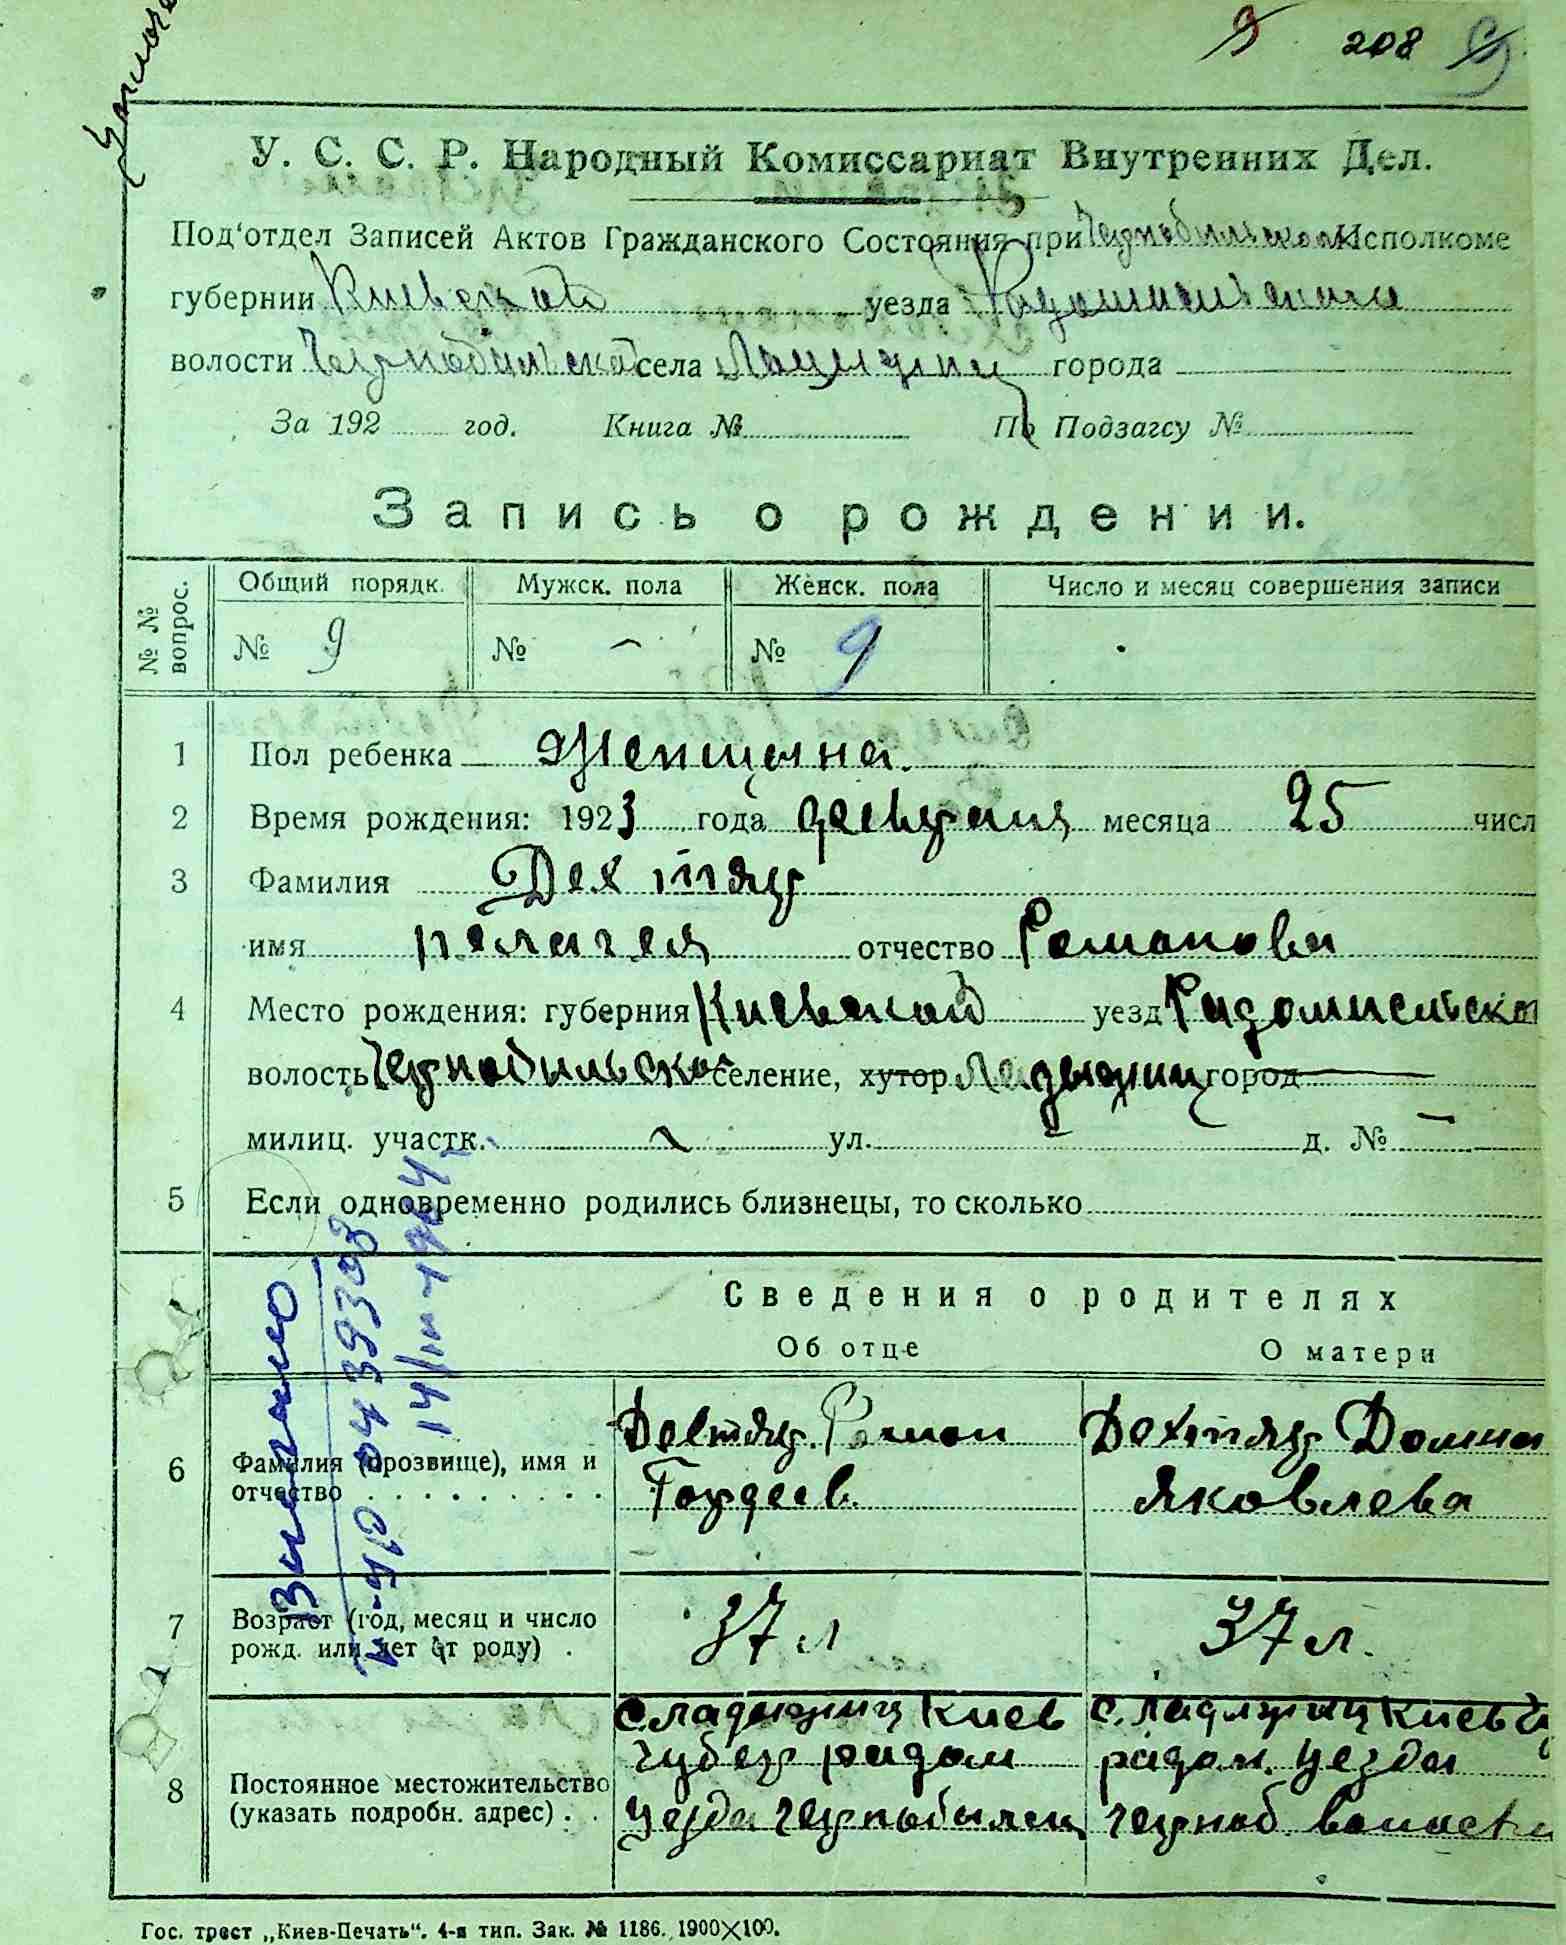 9 208 9
У. С. С. Р. Народный Комиссариат Внутренних Дел.
Под'отдел Записей Актов Гражданского Состояния при Чернобильском Исполкоме
губернии Киевской уезда Радомисльского
волости Чернобильской села города
За 192 год. Книга № По Подзагсу №
Запись о рождении.
№ № вопрос. Общий порядк. Мужск. пола Женск. пола Число и месяц совершения записи
№ 9 № – № 9
1 Пол ребенка Женщина.
2 Время рождения: 1923 года февраля месяца 25 числ
3 Фамилия Дехтяр
имя пелагея отчество Романова
4 Место рождения: губерния Киевской уезд Радомисльско
волость Чернобильской селение, хутор Ладыжич город
милиц. участк. ул. – д. № –
5 Если одновременно родились близнецы, то сколько
Сведения о родителях
Об отце О матери
6 Фамилия (прозвище), имя и отчество . . . . . . . . .
Дехтяр Роман
Гордеев.
Дехтяр Домна
Яковлева
7 Возраст (год, месяц и число рожд. или лет от роду) .
37 л
37 л.
8 Постоянное местожительство (указать подробн. адрес) . .
с. Ладыжич Киев
губер радом
уезда чернобылец
с. Ладыжич Киев
радом. уезда
черноб волости
Гос. трест „Киев-Печать“. 4-я тип. Зак. № 1186. 1900×100.